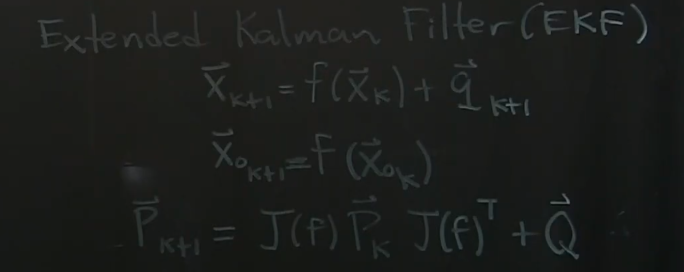 Extended Kalman Filter (EKF)
x⃗ₖ₊₁ = f(x⃗ₖ) + q⃗ₖ₊₁
x⃗₀ₖ₊₁ = f(x⃗₀ₖ)
P⃗ₖ₊₁ = J(f) P⃗ₖ J(f)ᵀ + Q⃗